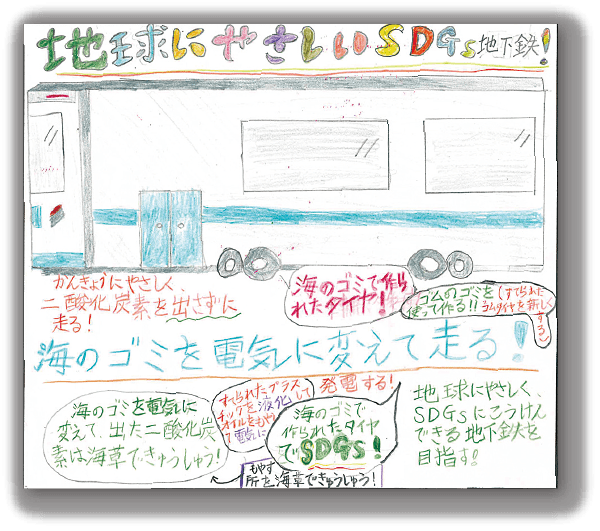 地球にやさしいSDGs地下鉄!
かんきょうにやさしく、
二酸化炭素を出さずに
走る!
海のゴミで作ら
れたタイヤ!
ゴムのゴミを
使って作る!!
(すてられた
ゴムタイヤを新しく
する)
海のゴミを電気に変えて走る!
海のゴミを電気に
変えて、出た二酸化炭
素は海草できゅうしゅう!
すてられたプラス
チックを液化して
オイルをもやし
て電気に
発電する!
海のゴミで
作られたタイヤ
でSDGs!
もやす
所を海草できゅうしゅう!
地球にやさしく、
SDGsにこうけん
できる地下鉄を
目指す。